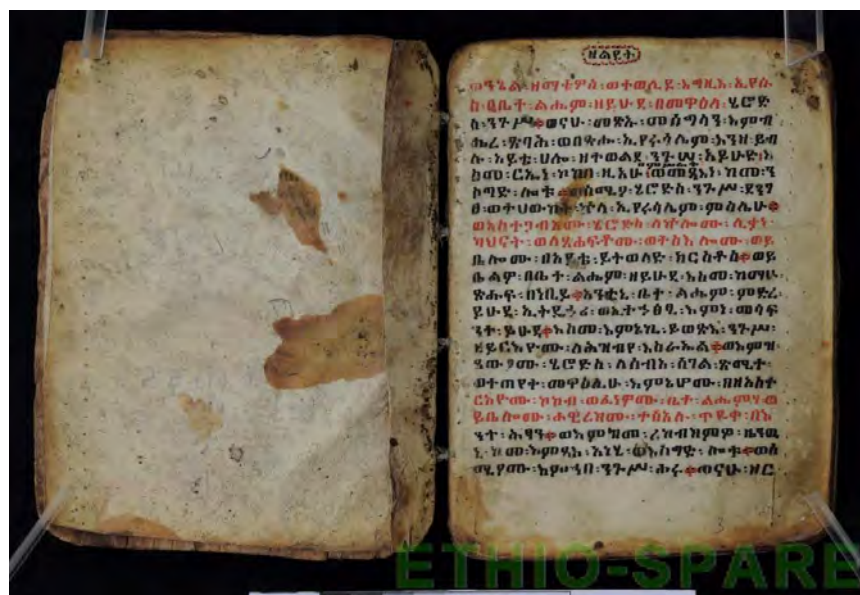 ዘልደት
ወንጌል፡ ዘማቴዎስ፡ ወተወሊዶ፡ እግዚእ፡ ኢየሱ
ስ፡ በቤተ፡ ልሔም፡ ዘይሁዳ፡ በመዋዕለ፡ ሄሮድ
ስ፡ ንጉሥ። ወናሁ፡ መጽኡ፡ መሰግላን፡ እምብ
ሔረ፡ ጽባሕ፡ ወበጽሑ፡ ኢየሩሳሌም፡ እንዘ፡ ይብ
ሉ፡ አይቴ፡ ሀሎ፡ ዘተወልደ፡ ንጉሠ፡ አይሁድ፡ እ
ስመ፡ ርኢነ፡ ኮከበ፡ ዚአሁ፡ ወመጻእነ፡ ከመ፡ ን
ስግድ፡ ሎቱ። ወሰሚዖ፡ ሄሮድስ፡ ንጉሥ፡ ደንገ
ፀ፡ ወተሀውከት፡ ኵላ፡ ኢየሩሳሌም፡ ምስሌሁ።
ወአስተጋብኦሙ፡ ሄሮድስ፡ ለኵሎሙ፡ ሊቃነ፡
ካህናት፡ ወለጸሐፍቶሙ፡ ወትስእሎሙ፡ ወይ
ቤሎሙ፡ በአይቴ፡ ይትወለድ፡ ክርስቶስ። ወይ
ቤልዎ፡ በቤተ፡ ልሔም፡ ዘይሁዳ፡ እስመ፡ ከማሁ፡
ጽሑፍ፡ በነቢይ። አንቲኒ፡ ቤተ፡ ልሔም፡ ምድረ፡
ይሁዳ፡ ኢትዴኃሪ፡ ወኢትኃፅፂ፡ እምነ፡ መሳፍ
ንተ፡ ይሁዳ። እስመ፡ እምኔኪ፡ ይወጽእ፡ ንጉሥ፡
ዘይርእዮሙ፡ ለሕዝብየ፡ እስራኤል። ወእምዝ፡
ጸውዖሙ፡ ሄሮድስ፡ ለሰብአ፡ ሰገል፡ ጽሚተ፡
ወተጠየቀ፡ መዋዕሊሁ፡ እምኔሆሙ፡ በዘአስተ
ርአዮሙ፡ ኮከብ፡ ወፈነዎሙ፡ ቤተ፡ ልሔም፡ ወ
ይቤሎሙ፡ ሐዊረክሙ፡ ተስአሉ፡ ጥዩቀ፡ በእ
ንተ፡ ሕፃን። ወእምከመ፡ ረከብክምዎ፡ ዜንዉ
ኒ፡ ከመ፡ እምጻእ፡ አነሂ፡ ወእስግድ፡ ሎቱ። ወሰ
ሚዖሙ፡ እምኀበ፡ ንጉሥ፡ ሖሩ። ወናሁ፡
3
ETHIO-SPARE